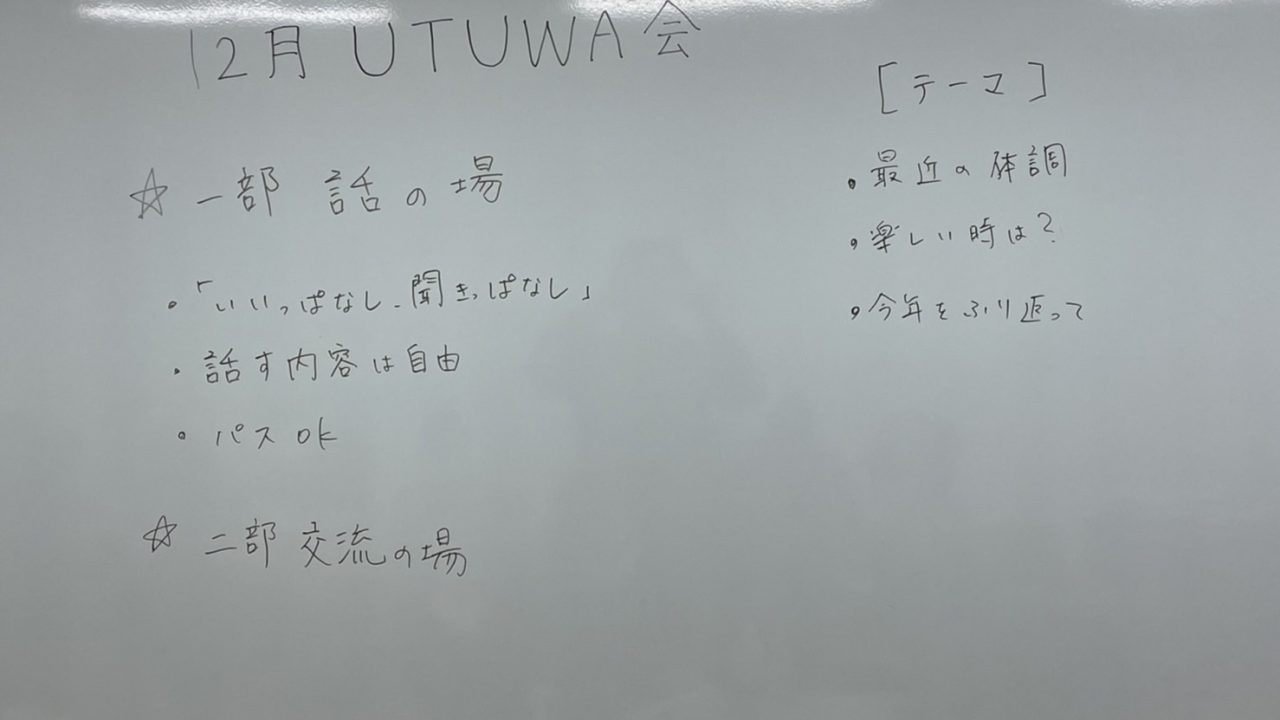 12月 UTUWA会
☆ 一部 話の場
・「いいっぱなし、聞きっぱなし」
・話す内容は自由
・パスOK
☆ 二部 交流の場
[テーマ]
・最近の体調
・楽しい時は?
・今年をふり返って